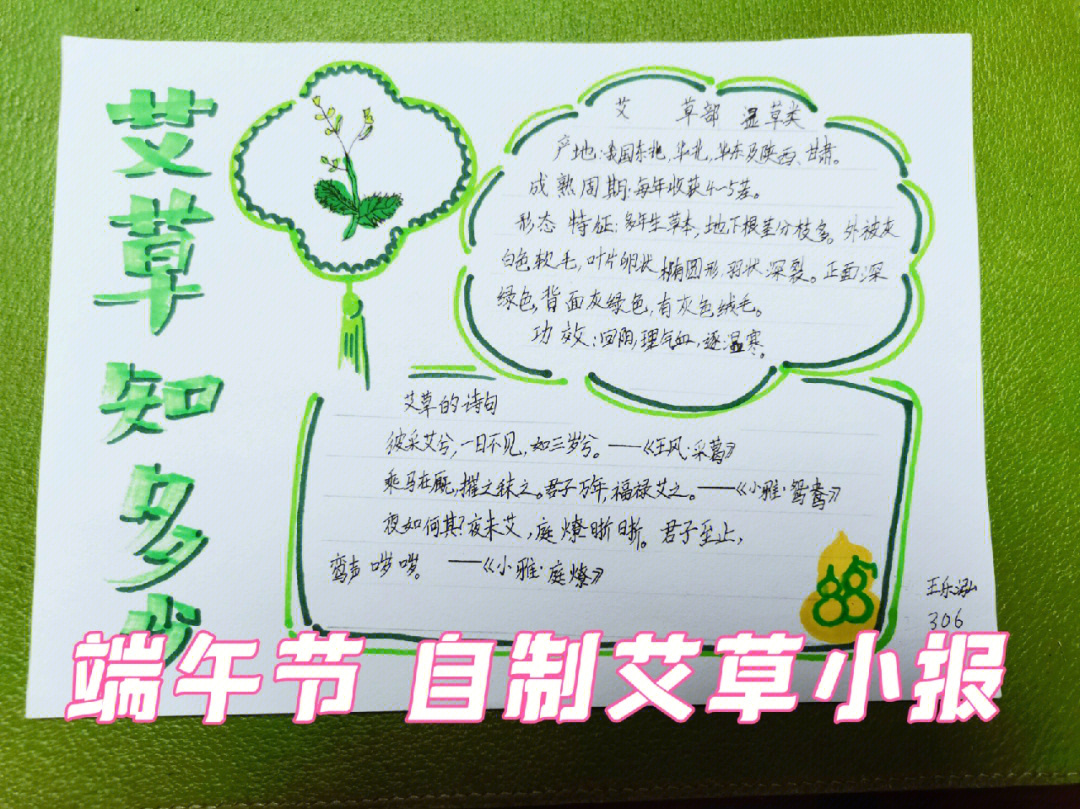 艾草知多少
艾 草部 湿草类
产地:我国东北,华北,华东及陕西、甘肃。
成熟周期:每年收获4-5茬。
形态 特征:多年生草本,地下根茎分枝多。外被灰
白色软毛,叶片卵状椭圆形,羽状深裂。正面深
绿色,背面灰绿色,有灰色绒毛。
功效:回阳,理气血,逐湿寒。
艾草的诗句
彼采艾兮,一日不见,如三岁兮。——《王风·采葛》
乘马在厩,摧之秣之。君子万年,福禄艾之。——《小雅·鸳鸯》
夜如何其?夜未艾,庭燎晣晣。君子至止,
鸾声哕哕。——《小雅·庭燎》
王乐泓
306
端午节 自制艾草小报